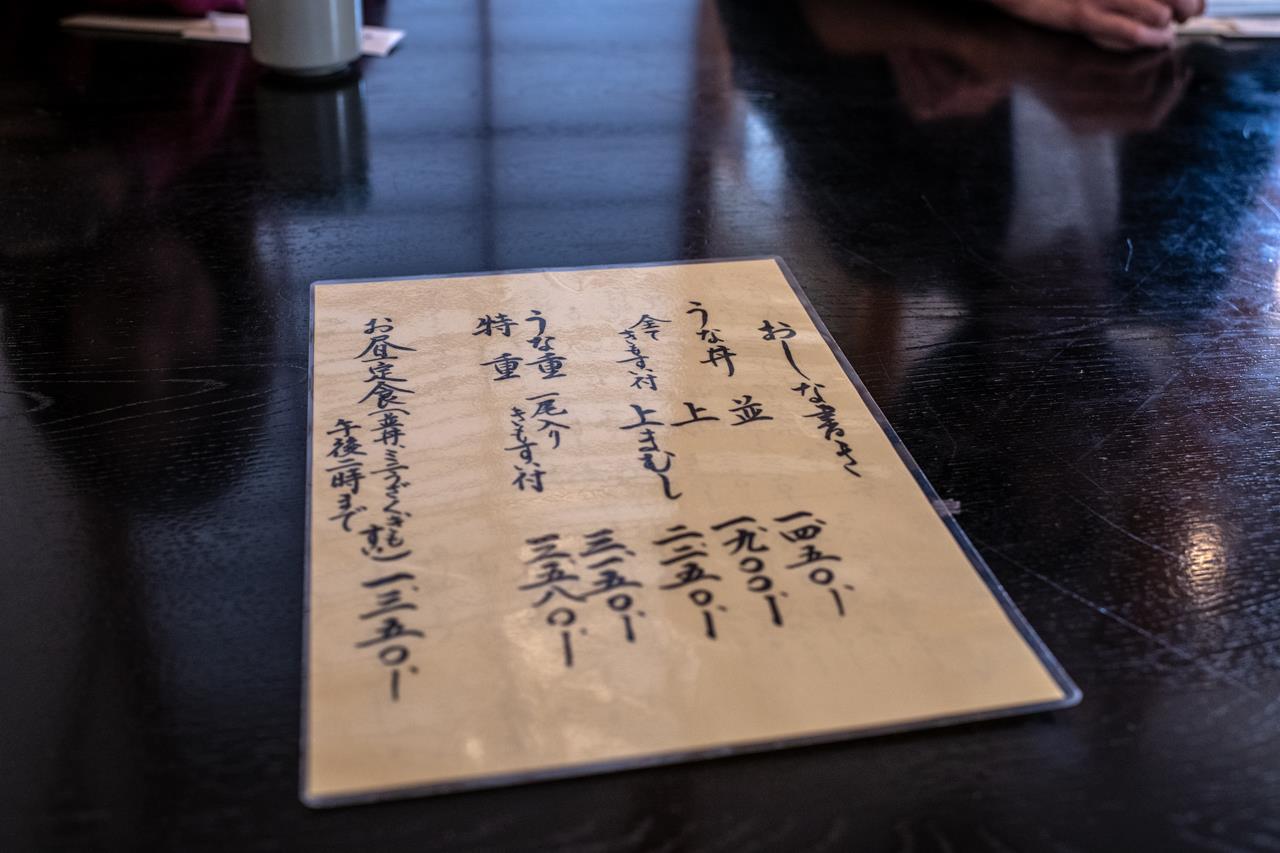 おしな書き
うな丼 並 一、四五〇、-
上 一、九〇〇、-
全てきもすい付 上まむし 二、二五〇、-
うな重 一尾入り 三、一五〇、-
特重 きもすい付 三、五八〇、-
お昼定食(並丼、ミニうざく、きもすい) 一、三五〇、-
午後二時まで